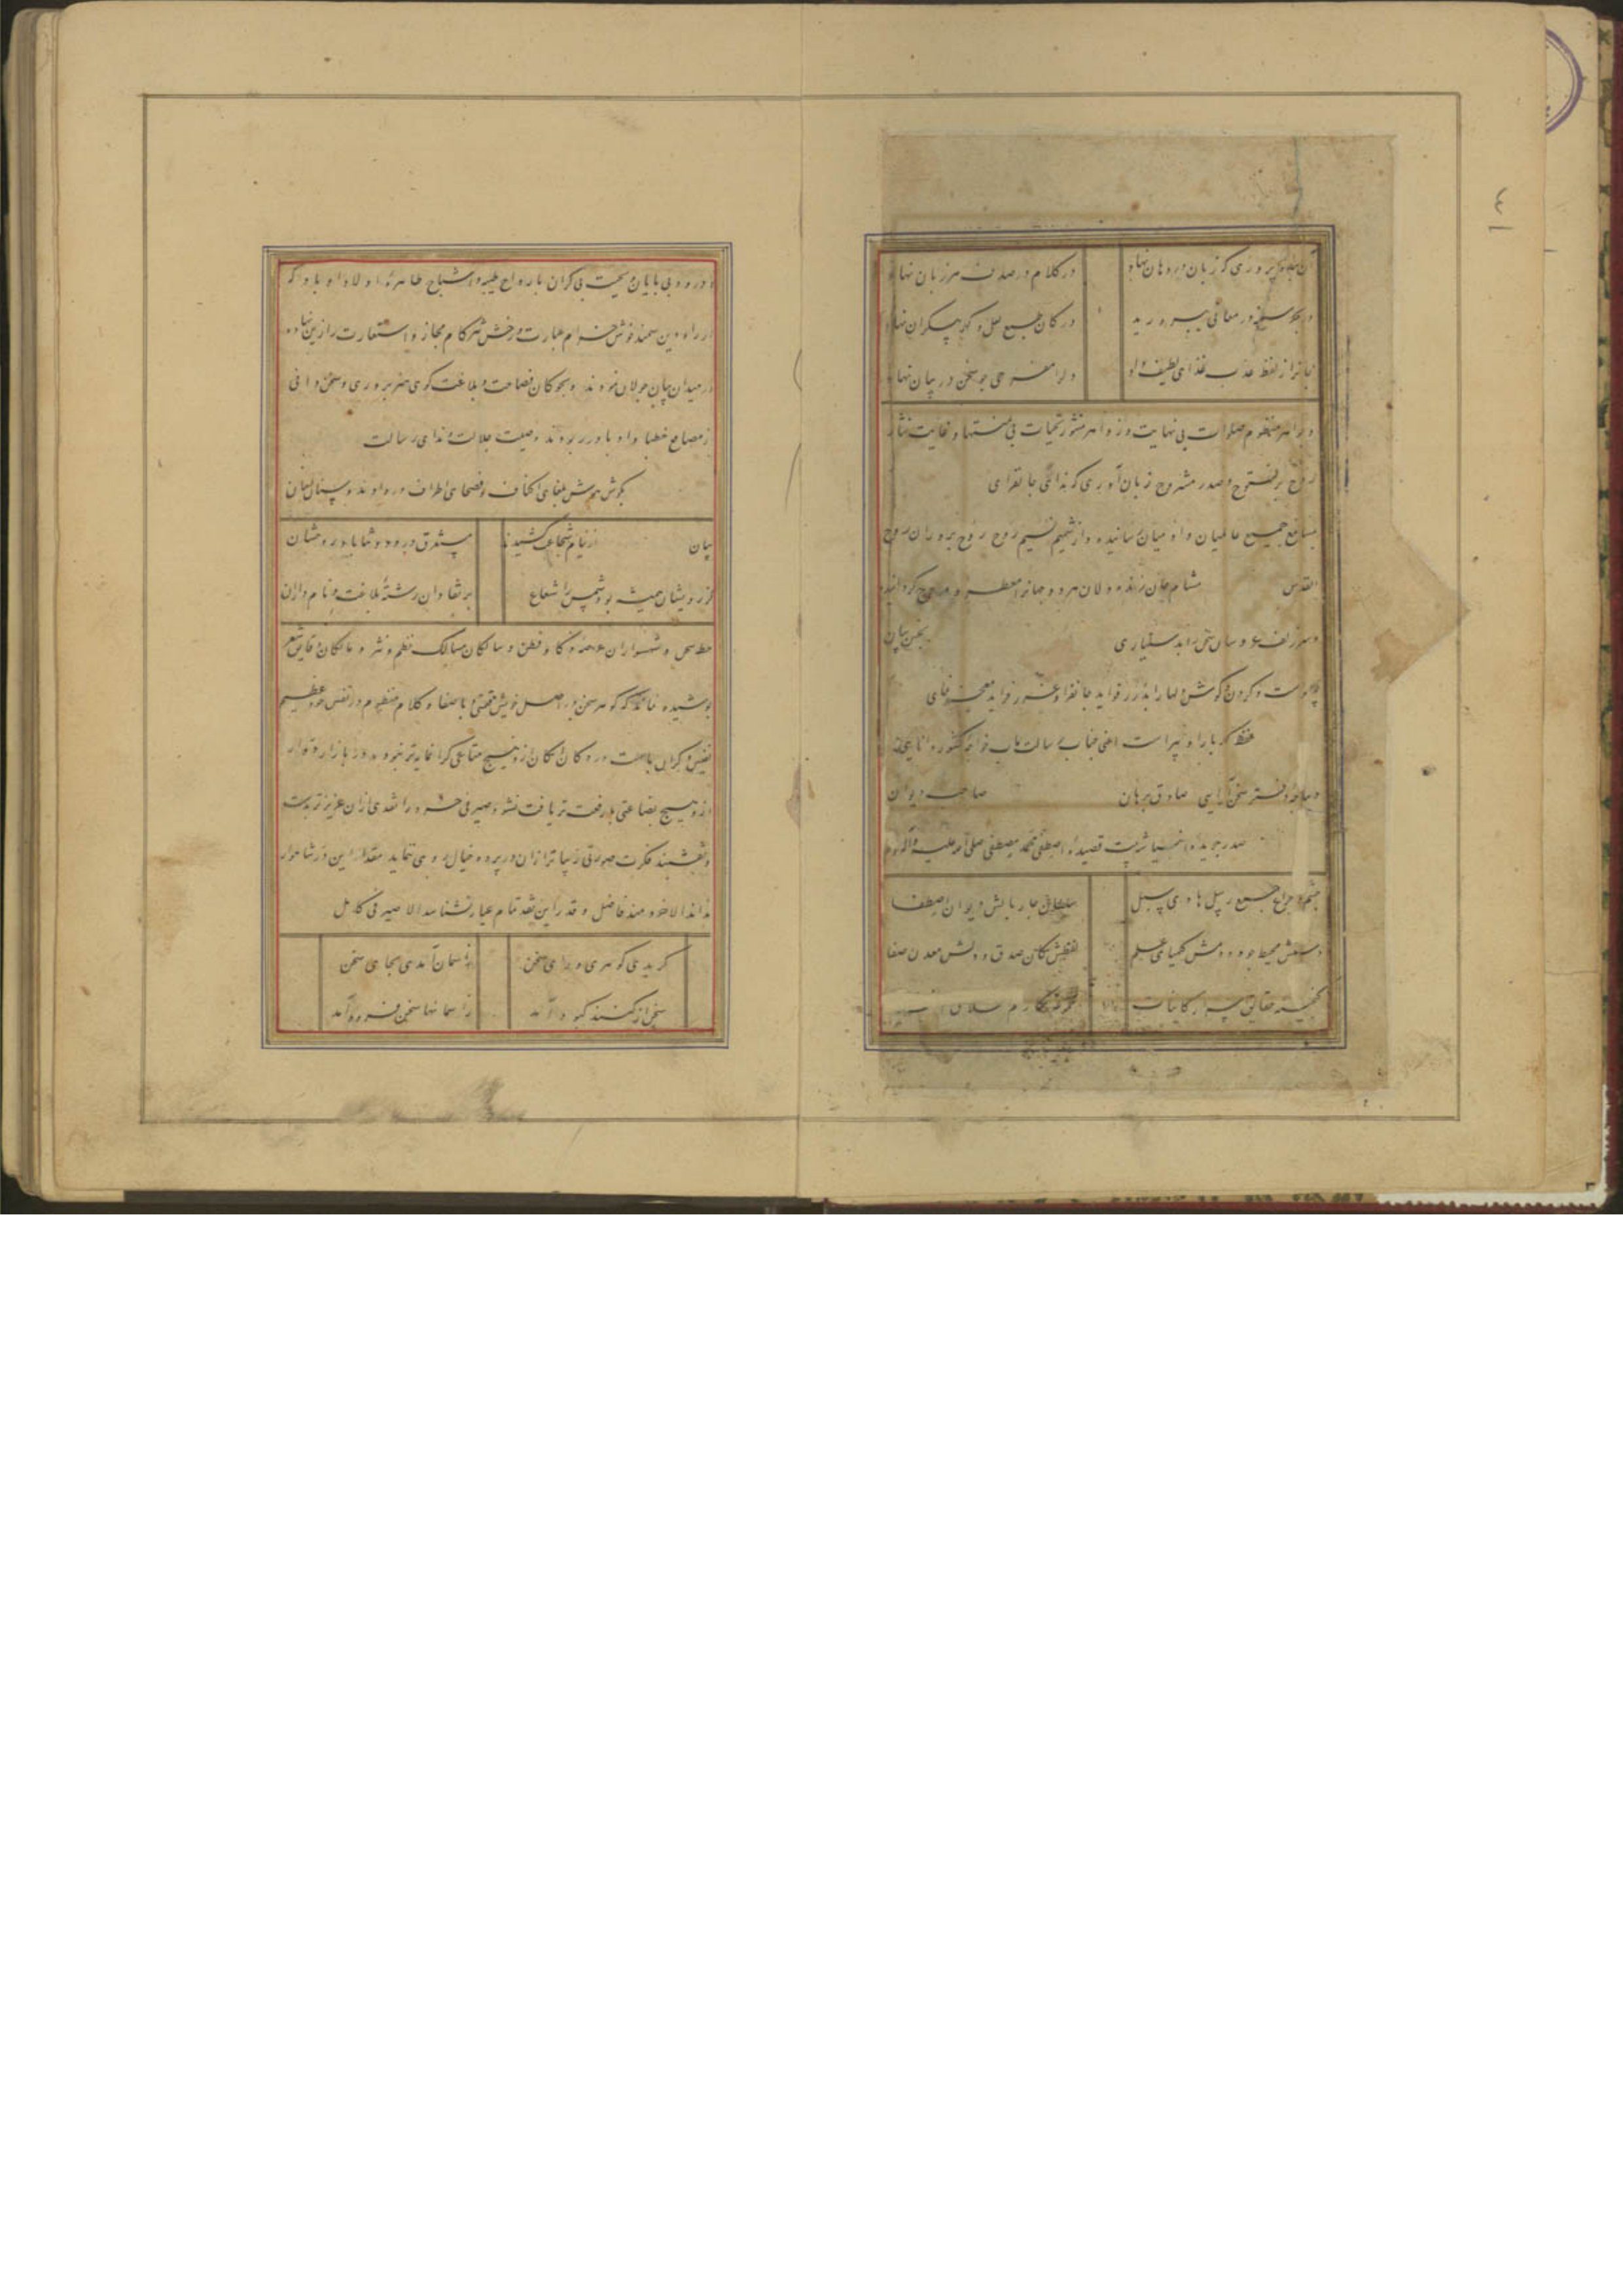 آن سخن پروری که زبان در دهان نهاد
در کلام در صدف هر زبان نهاد
در بحر سینه در معانی بپرورید
در کان طبع لعل و گهر بیکران نهاد
جانرا ز لفظ عذب غذای لطیف داد
دلرا مفرحی چو سخن در بیان نهاد
و جواهر منظوم صلوات بی نهایت و زواهر منثور تحیات بی منتها و غایت نثار
روح پرفتوح و صدر مشروح زبان آوری که ندای جانفزای
بمسامع جمیع عالمیان و آدمیان رسانیده و از شمیم نسیم روح روح پروران روح
القدس مشام جان زنده دلان مرده جانرا معطر و مروح گردانیده
و سر زلف عروسان سخن را بدستیاری بحسن بیان
و گردن و گوش دلها را بدرر فواید جانفزا و غرر فراید معجزنمای
لفظ گهربار او پیراست اعنی جناب رسالت مآب خواجه کشور دانایی
دیباجه دفتر سخن آرایی صادق برهان صاحب دیوان
صدر جریده انبیا بیت قصیده اصطفی محمد مصطفی صلی الله علیه وآله وسلم
چشم و چراغ جمع رسل هادی سبل
سلطان چار بالش دیوان اصطفا
دستش محیط جود و دمش کیمیای علم
لفظش مکان صدق و دلش معدن صفا
گنجینه حقایق اسرار کاینات
و درود بی پایان و تحیت بی کران بارواح طیبه و اشباح طاهره اولاد او باد که
در راه دین سمند خوش خرام عبارت و رخش تیزگام مجاز و استعارت را زین نهاده
در میدان بیان جولان نمودند و بچوگان فصاحت و بلاغت گوی هنرپروری و سخن دانی
از مصاقع خطبا و ادبا در ربودند و صیت جلالت و ندای رسالت
بگوش هوش بلغای اکناف و فصحای اطراف در دادند و بسنان لسان
بیان از نیام شجاعت کشیدند
پیشتر ق درود و ثنا باد بر روحشان
کز رویشان همیشه بود شمس را شعاع
بر نقادان رشته بلاغت و نامداران
خطه سخن و شهسواران عرصه ذکا و فطن و سالکان مسالک نظم و نثر و مالکان دقایق شعر
پوشیده نماند که گوهر سخن در اصل خویش قیمتی با صفا و کلام منظوم در نفس خود عظیم
نفیس و گران بهاست در دکان امکان ازو هیچ متاعی گرانمایه تر نبود و در بازار ادوار
ازو هیچ بضاعتی با رفعت تر یافت نشود صیرفی خرد را نقدی ازان عزیزتر بدست
و نقشبند فکرت صورتی زیباتر ازان در پرده خیال روی ننماید مقدار این در شاهوار
نداند الا خردمند فاضل و قدر این نقد تمام عیار نشناسد الا صیرفی کامل
گر بدی گوهری ورای سخن
ز آسمان آمدی بجای سخن
سخن از گنبد کبود آمد
ز آسمانها سخن فرود آمد